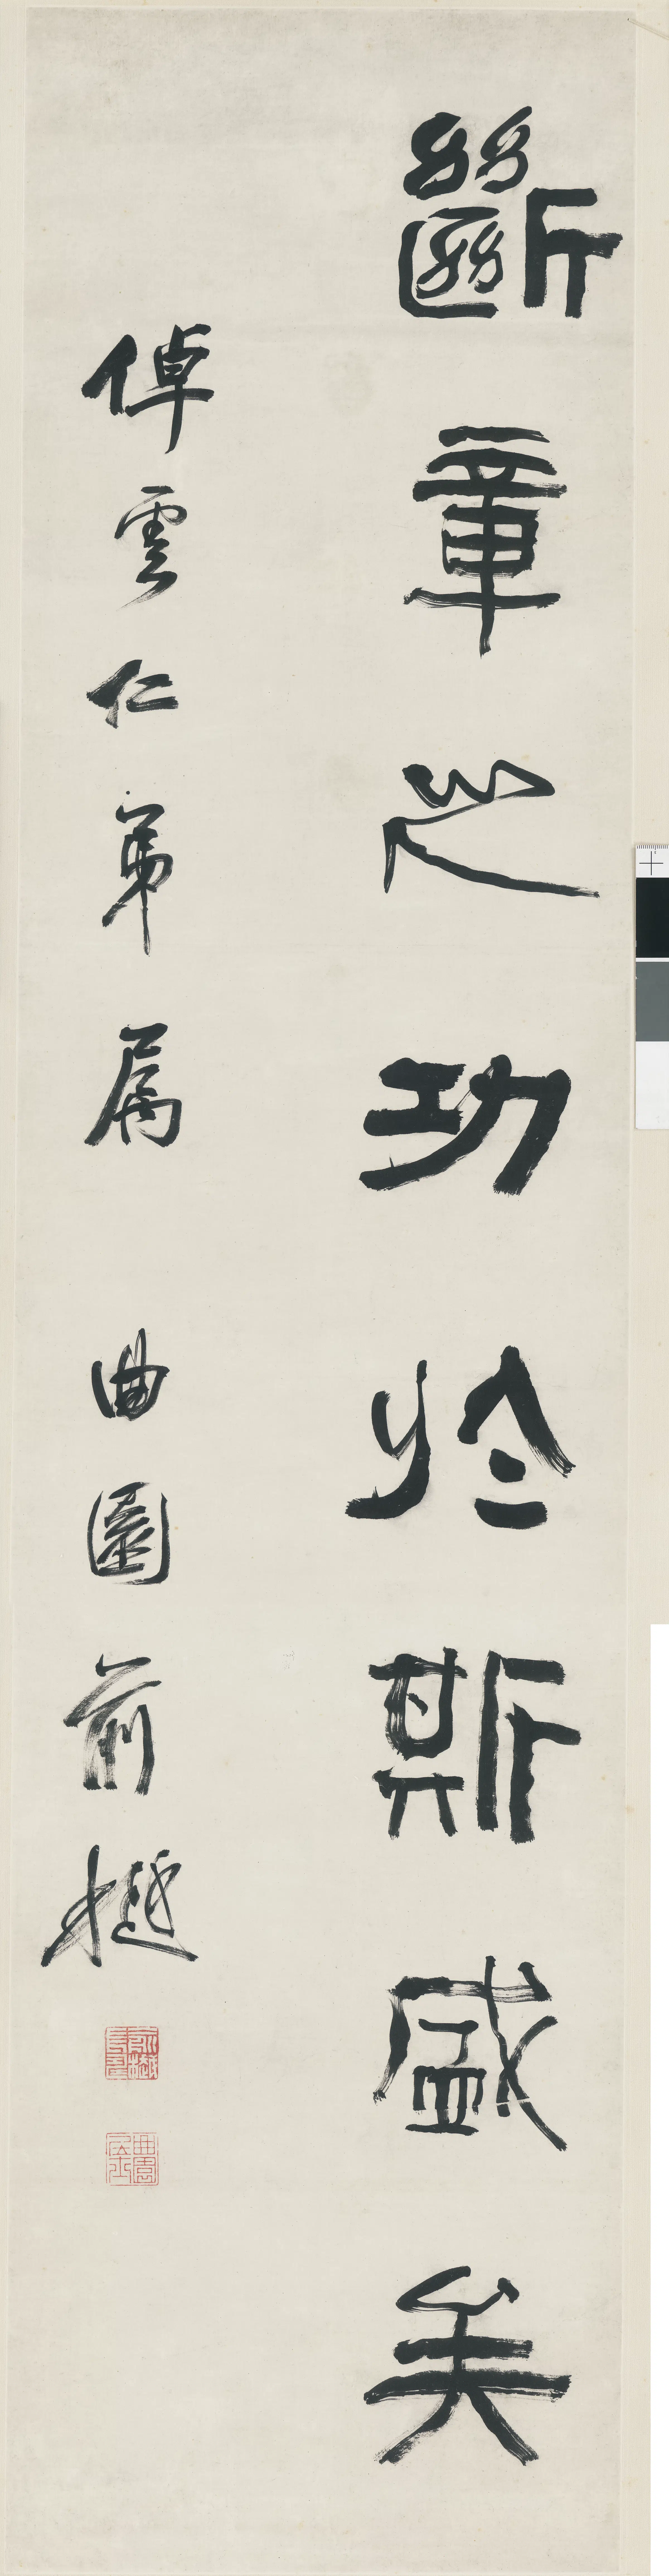 斷章之功於斯盛矣
倬雲仁弟屬 曲園俞樾
俞樾長壽
曲園居士